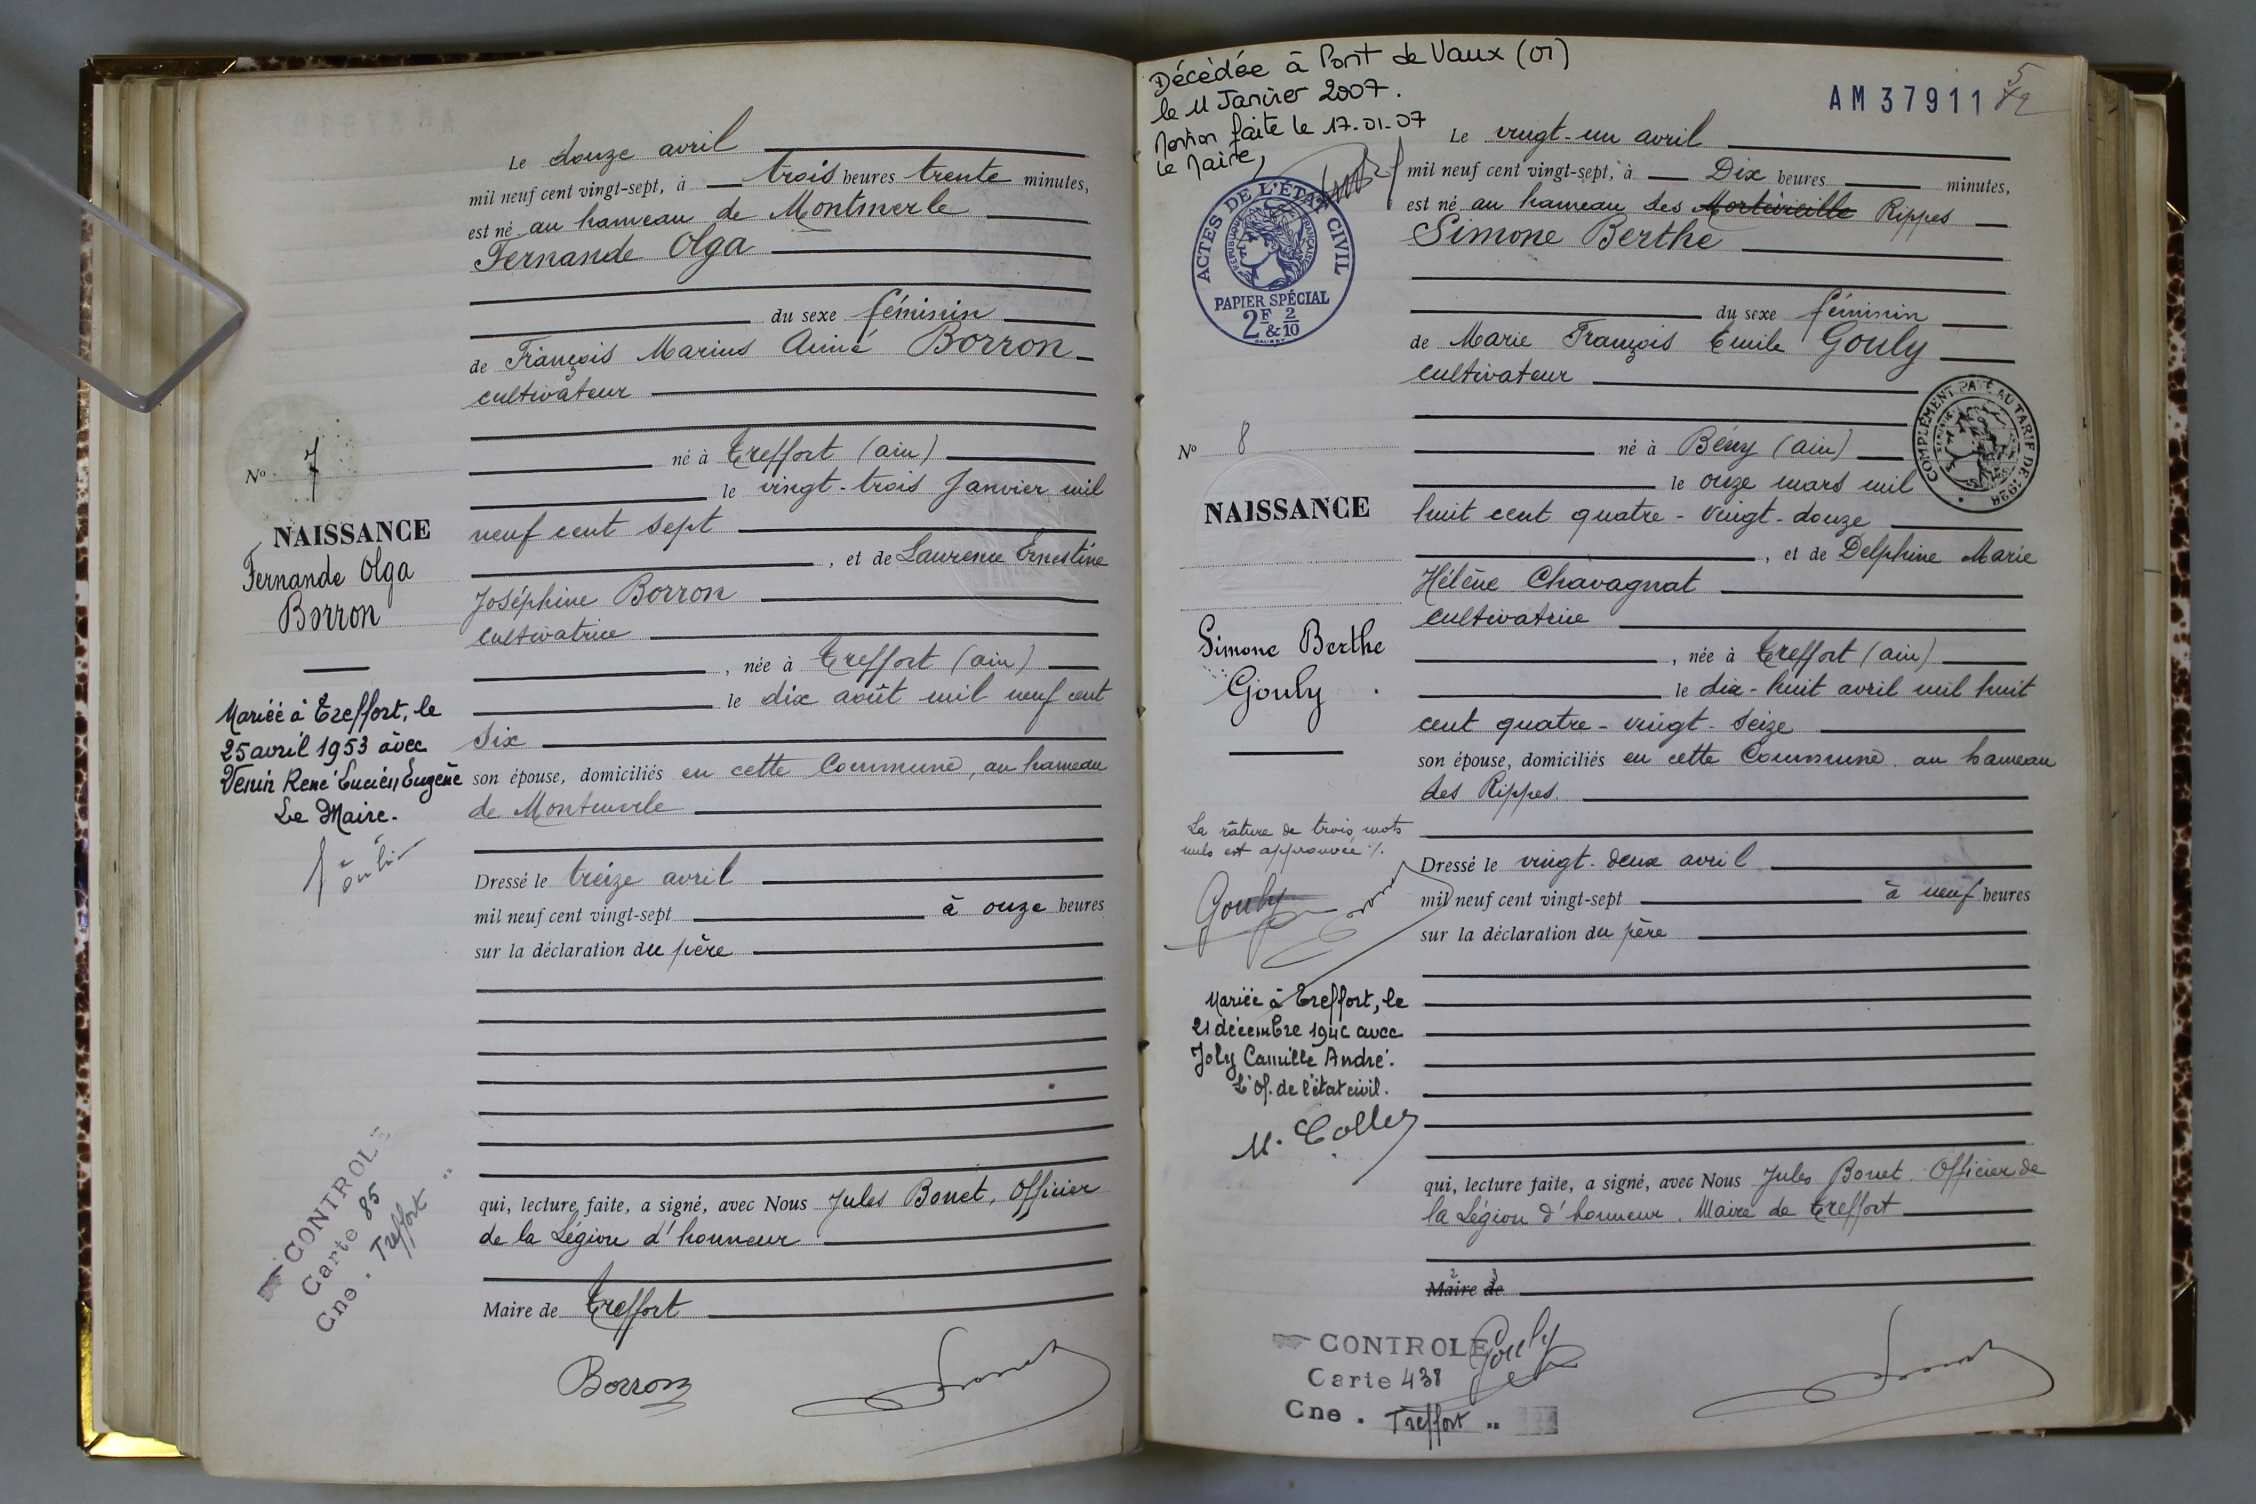 Le douze avril
mil neuf cent vingt-sept, à trois heures trente minutes,
est né au hameau de Montmerle
Fernande Olga
du sexe féminin
de François Marius Aimé Borron
cultivateur
né à Treffort (ain)
le vingt-trois Janvier mil
neuf cent sept
, et de Laurence Ernestine
Joséphine Borron
cultivatrice
, née à Treffort (ain)
le dix août mil neuf cent
six
son épouse, domiciliés en cette Commune, au hameau
de Montmerle
Dressé le treize avril
mil neuf cent vingt-sept à onze heures
sur la déclaration du père
qui, lecture faite, a signé, avec Nous Jules Bonet, Officier
de la Légion d'honneur
Maire de Treffort
Borron
No 7
NAISSANCE
Fernande Olga
Borron
Mariée à Treffort, le
25 avril 1953 avec
Venin René Lucien Eugène
Le Maire.
CONTROLE
Carte 85
Cne. Treffort "
Décédée à Pont de Vaux (01)
le 11 Janvier 2007.
Mention faite le 17-01-07
Le Maire,
AM 37911
5
ACTES DE L'ÉTAT CIVIL
RÉPUBLIQUE FRANÇAISE
PAPIER SPÉCIAL
2F & 2/10
Le vingt-un avril
mil neuf cent vingt-sept, à Dix heures minutes,
est né au hameau des Rippes
Simone Berthe
du sexe féminin
de Marie François Emile Gouly
cultivateur
COMPLÉMENT PAYÉ AU TARIF DE 1926
né à Bény (ain)
le onze mars mil
huit cent quatre-vingt-douze
, et de Delphine Marie
Hélène Chavagnat
cultivatrice
, née à Treffort (ain)
le dix-huit avril mil huit
cent quatre-vingt-seize
son épouse, domiciliés en cette Commune au hameau
des Rippes
Dressé le vingt-deux avril
mil neuf cent vingt-sept à neuf heures
sur la déclaration du père
qui, lecture faite, a signé, avec Nous Jules Bonet Officier de
la Légion d'honneur. Maire de Treffort
Maire de
Gouly
No 8
NAISSANCE
Simone Berthe
Gouly
La râture de trois mots
nuls est approuvée %.
Gouly
Mariée à Treffort, le
21 décembre 194 avec
Joly Camille André.
L'Of. de l'état civil.
CONTROLE
Carte 438
Cne. Treffort "